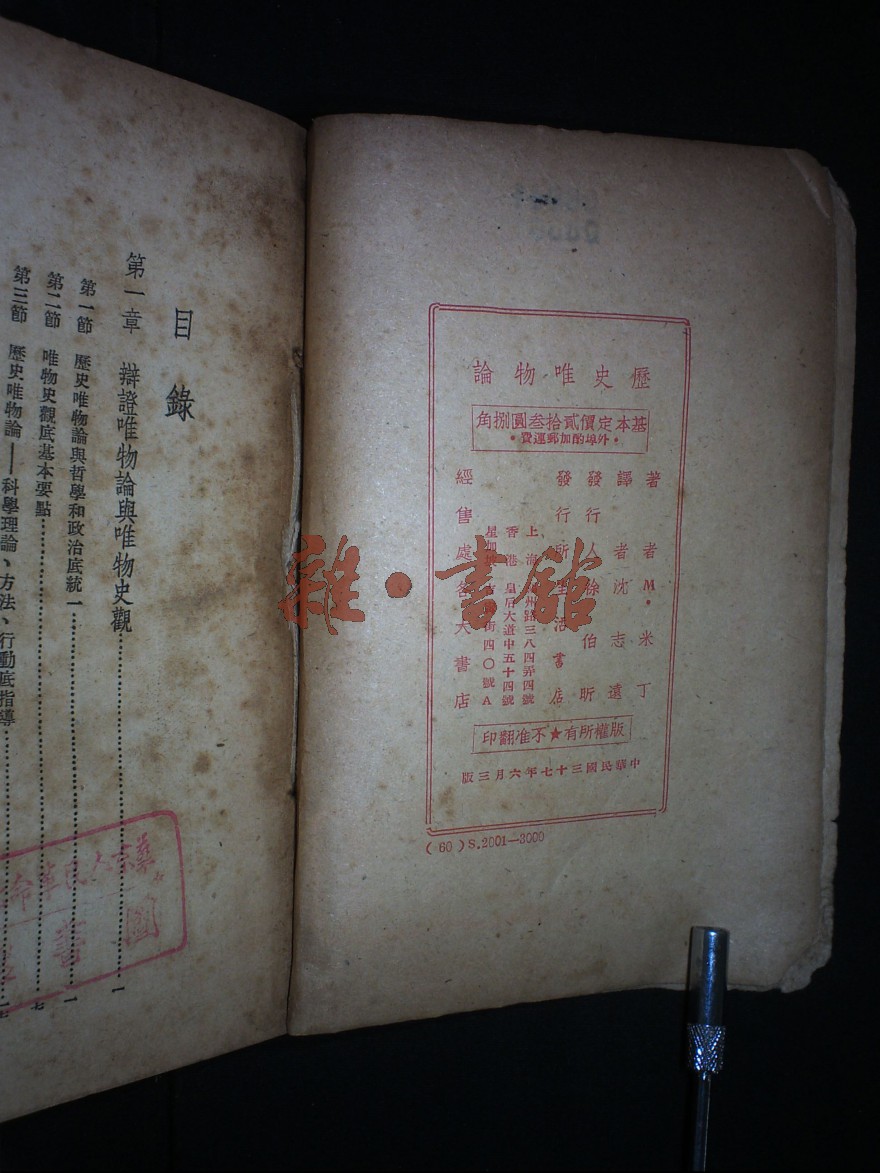 歷史唯物論
基本定價貳拾叁圓捌角
•外埠酌加郵運費•
著者 M•米丁
譯者 沈志遠
發行人 徐伯昕
發行所 生活書店
上海 州路三八四弄四號
香港 皇后大道中五十四號
星 街四〇號A
經售處 各大書店
版權所有★不准翻印
中華民國三十七年六月三版
(60) S.2001—3000
目錄
第一章 辯證唯物論與唯物史觀 一
第一節 歷史唯物論與哲學和政治底統一 一
第二節 唯物史觀底基本要點 七
第三節 歷史唯物論——科學理論、方法、行動底指導
人民革命
圖書
雜·書館